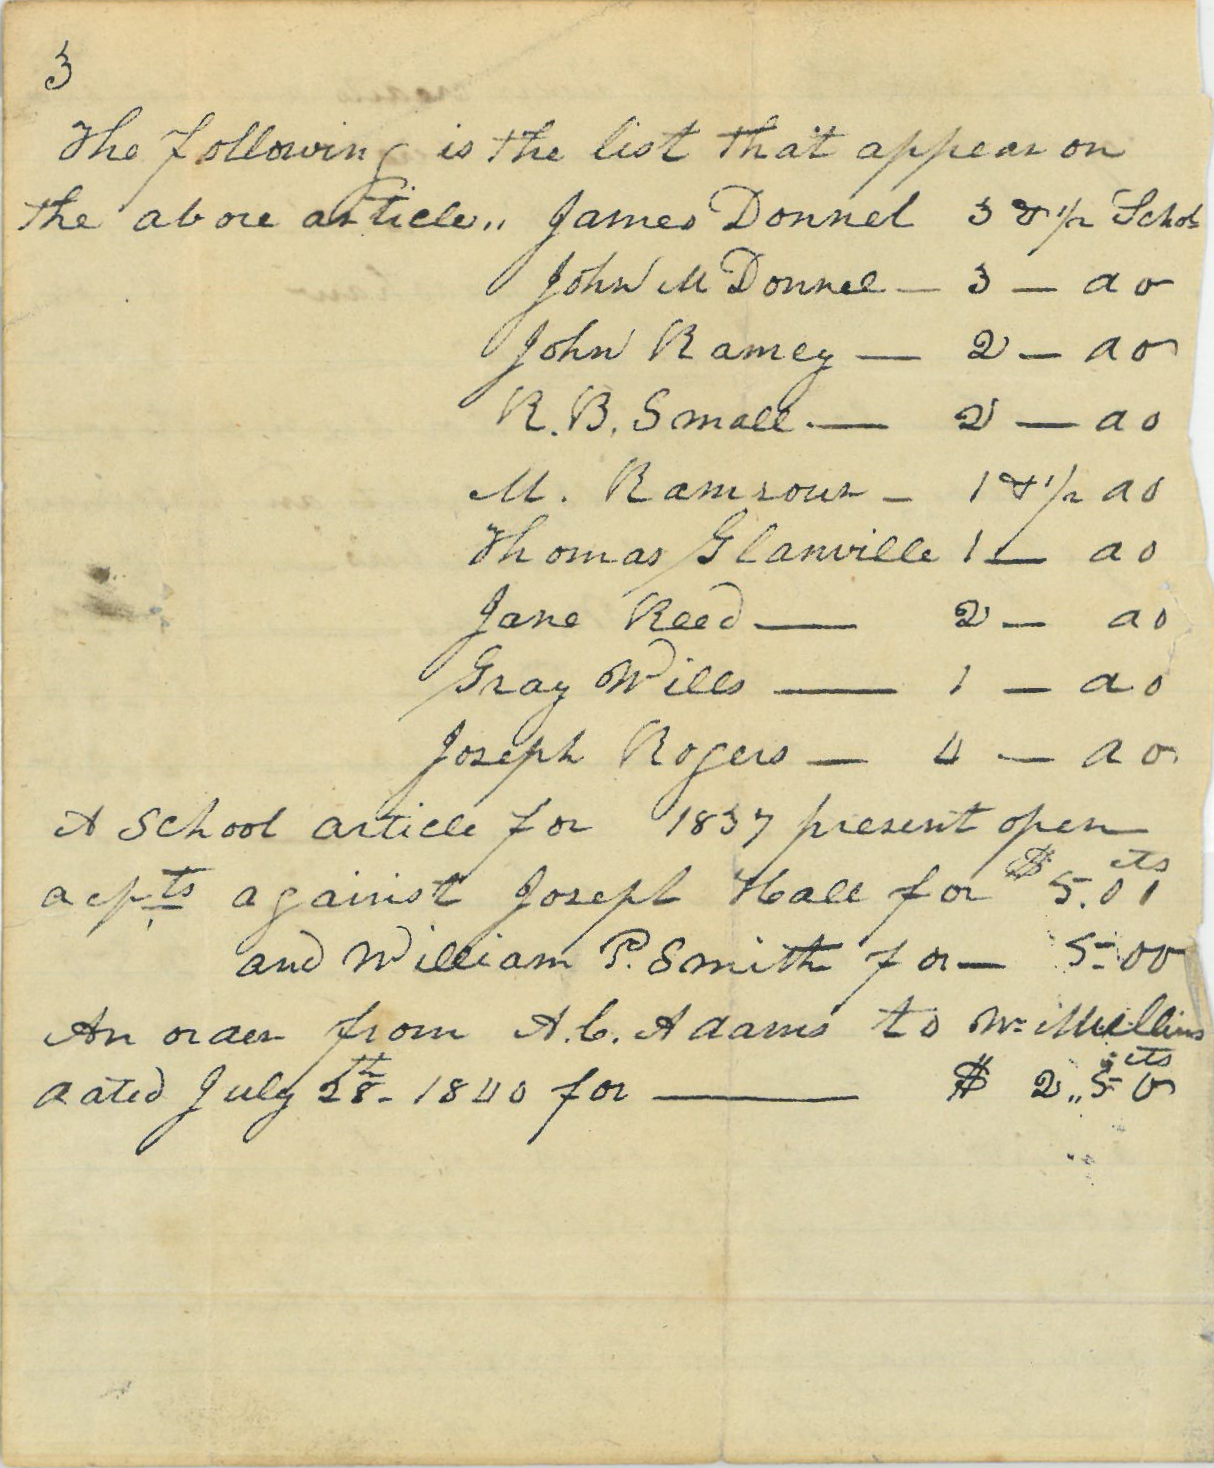 3
The following is the list that appear on
the above article,, James Donnel 3 & 1/2 Schols
John McDonnel — 3 — do
John Ramey — 2 — do
R. B. Small. — 2 — do
M. Ramsour — 1 & 1/2 do
Thomas Glanville 1 — do
Jane Reed — 2 — do
Gray Wills — 1 — do
Joseph Rogers — 4 — do
A School article for 1837 present open
acpts against Joseph Hall for $ 5.01 cts
and William P. Smith for — 5-00
An order from A. C. Adams to Wm Mullins
dated July 28th - 1840 for — $ 2,,50 cts